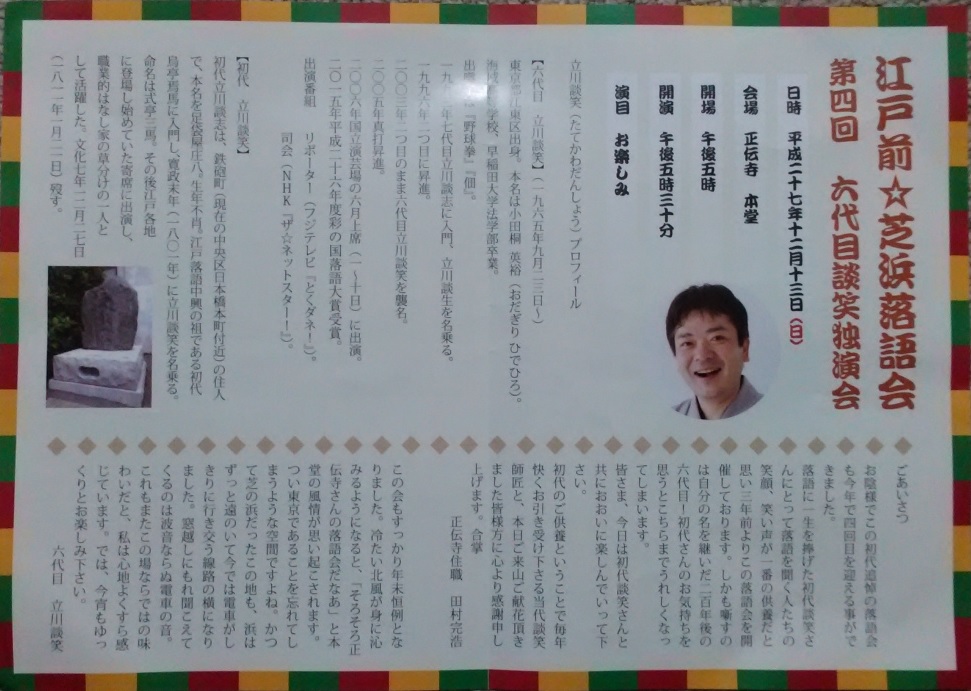 江戸前☆芝浜落語会
第四回　六代目談笑独演会
日時　平成二十七年十二月十三日（日）
会場　正伝寺　本堂
開場　午後五時
開演　午後五時三十分
演目　お楽しみ
立川談笑（たてかわだんしょう）プロフィール
【六代目　立川談笑】（一九六五年九月二三日～）
東京都江東区出身。本名は小田桐　英裕（おだぎり　ひでひろ）。
学校、早稲田大学法学部卒業。
『野球拳』『佃』。
七代目立川談志に入門、立川談生を名乗る。
一九九六年二つ目に昇進。
二〇〇三年二つ目のまま六代目立川談笑を襲名。
二〇〇五年真打昇進。
二〇〇六年国立演芸場の六月上席（一～十日）に出演。
二〇一五年平成二十六年度彩の国落語大賞受賞。
出演番組　リポーター（フジテレビ『とくダネ！』）。
司会（ＮＨＫ『ザ☆ネットスター！』）。
【初代　立川談笑】
初代立川談志は、鉄砲町（現在の中央区日本橋本町付近）の住人
で、本名を足袋屋庄八。生年不肖。江戸落語中興の祖である初代
烏亭焉馬に入門し、寛政末年（一八〇一年）に立川談笑を名乗る。
命名は式亭三馬。その後江戸各地
に登場し始めていた寄席に出演し、
職業的はなし家の草分けの一人と
して活躍した。文化七年十二月二七日
（一八一一年一月二一日）歿す。
ごあいさつ
お陰様でこの初代追悼の落語会
も今年で四回目を迎える事がで
きました。
落語に一生を捧げた初代談笑さ
んにとって落語を聞く人たちの
笑顔、笑い声が一番の供養だと
思い三年前よりこの落語会を開
催しております。しかも噺すの
は自分の名を継いだ二百年後の
六代目！初代さんのお気持ちを
思うとこちらまでうれしくなっ
てしまいます。
皆さま、今日は初代談笑さんと
共におおいに楽しんでいって下
さい。
初代のご供養ということで毎年
快くお引き受け下さる当代談笑
師匠と、本日ご来山ご献花頂き
ました皆様方に心より感謝申し
上げます。合掌
正伝寺住職　田村完浩
この会もすっかり年末恒例とな
りました。冷たい北風が身に沁
みるようになると、「そろそろ正
伝寺さんの落語会だなあ」と本
堂の風情が思い起こされます。
つい東京であることを忘れてし
まうような空間ですよね。かつ
て芝の浜だったこの地も、浜は
ずっと遠のいて今では電車がし
きりに行き交う線路の横になり
ました。窓越しにもれ聞こえて
くるのは波音ならぬ電車の音。
これもまたこの場ならではの味
わいだと、私は心地よくすら感
じています。では、今宵もゆっ
くりとお楽しみ下さい。
六代目　立川談笑